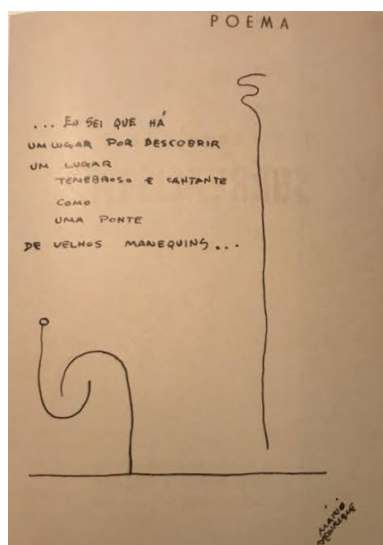 POEMA
... EU SEI QUE HÁ
UM LUGAR POR DESCOBRIR
UM LUGAR
TENEBROSO E CANTANTE
COMO
UMA PONTE
DE VELHOS MANEQUINS...
MÁRIO
HENRIQUE